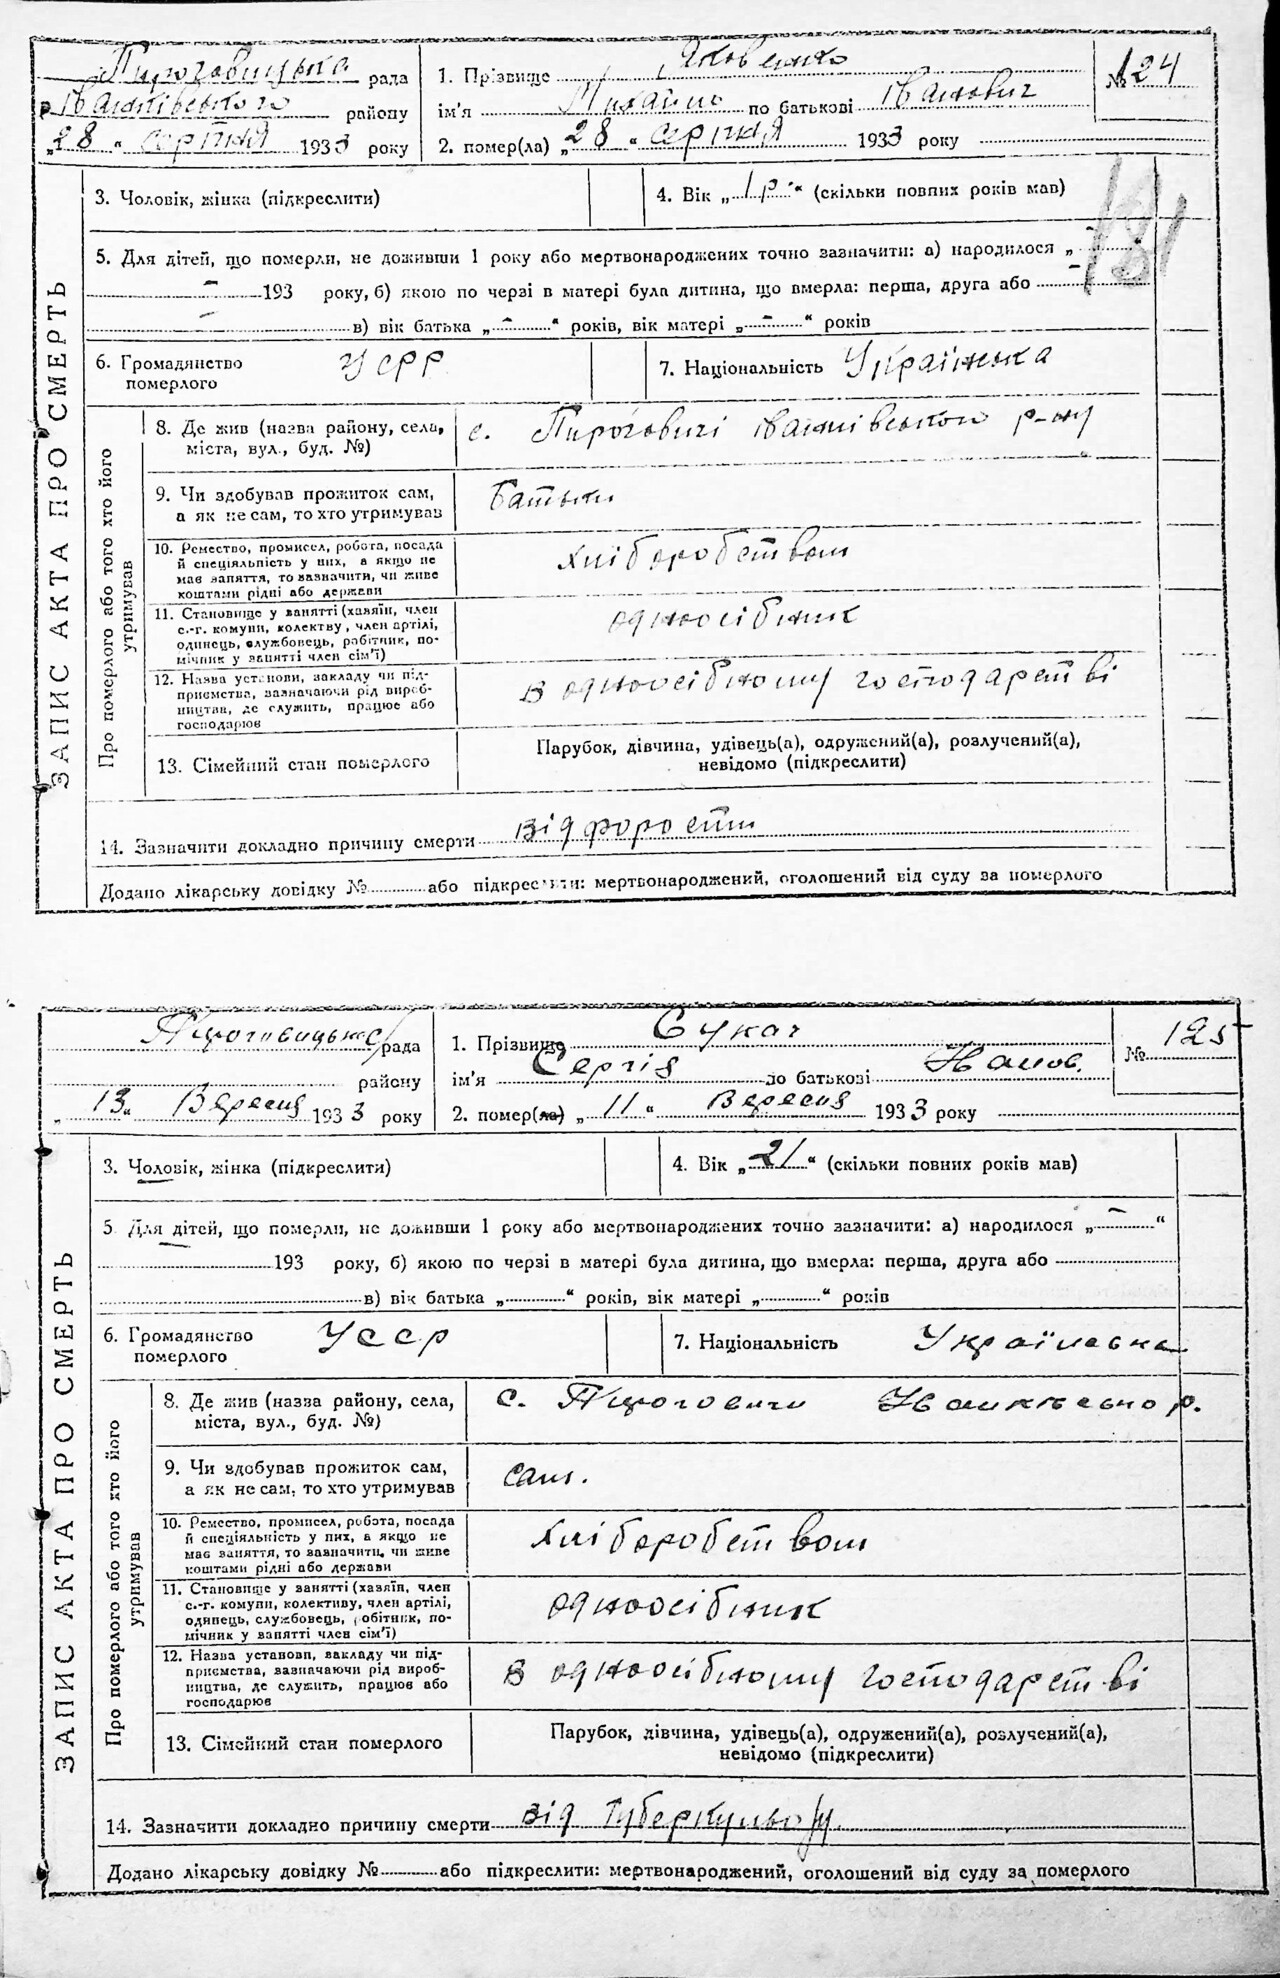 Пироговицька рада
Іванківського району
„28“ серпня 1933 року
1. Прізвище Яковенко
ім'я Михайло по батькові Іванович
2. помер(ла) „28“ серпня 1933 року
№ 124
131
ЗАПИС АКТА ПРО СМЕРТЬ
3. Чоловік, жінка (підкреслити)
4. Вік „1 р.“ (скільки повних років мав)
5. Для дітей, що померли, не доживши 1 року або мертвонароджених точно зазначити: а) народилося „-“
- 193 року, б) якою по черзі в матері була дитина, що вмерла: перша, друга або -
- в) вік батька „-“ років, вік матері „-“ років
6. Громадянство
померлого
УСРР
7. Національність Українська
Про померлого або того хто його
утримував
8. Де жив (назва району, села,
міста, вул., буд. №)
с. Пироговичі Іванківського р-ну
9. Чи здобував прожиток сам,
а як не сам, то хто утримував
Батьки
10. Ремество, промисел, робота, посада
й спеціяльність у них, а якщо не
має заняття, то зазначити, чи живе
коштами рідні або держави
хліборобством
11. Становище у занятті (хазяїн, член
с.-г. комуни, колективу, член артілі,
одинець, службовець, робітник, по-
мічник у занятті член сім'ї)
односібник
12. Назва установи, закладу чи під-
приємства, зазначаючи рід вироб-
ництва, де служить, працює або
господарює
в односібному господарстві
13. Сімейний стан померлого
Парубок, дівчина, удівець(а), одружений(а), розлучений(а),
невідомо (підкреслити)
14. Зазначити докладно причину смерти від форости
Додано лікарську довідку № або підкреслити: мертвонароджений, оголошений від суду за померлого
Пироговицька рада
району
„13“ Вересня 1933 року
1. Прізвище Сукач
ім'я Сергій по батькові Іванов.
2. помер(ла) „11“ Вересня 1933 року
№ 125
ЗАПИС АКТА ПРО СМЕРТЬ
3. Чоловік, жінка (підкреслити)
4. Вік „21“ (скільки повних років мав)
5 Для дітей, що померли, не доживши 1 року або мертвонароджених точно зазначити: а) народилося „-“
193 року, б) якою по черзі в матері була дитина, що вмерла: перша, друга або
в) вік батька „ “ років, вік матері „ “ років
6. Громадянство
померлого
УССР
7. Національність Українська
Про померлого або того хто його
утримував
8. Де жив (назва району, села,
міста, вул., буд. №)
с. Пироговичи Іванківсько р.
9. Чи здобував прожиток сам,
а як не сам, то хто утримував
сам.
10. Ремество, промисел, робота, посада
й спеціяльність у них, а якщо не
має заняття, то зазначити, чи живе
коштами рідні або держави
хліборобством
11. Становище у занятті (хазяїн, член
с.-г. комуни, колективу, член артілі,
одинець, службовець, робітник, по-
мічник у занятті член сім'ї)
односібник
12. Назва установи, закладу чи під-
приємства, зазначаючи рід вироб-
ництва, де служить, працює або
господарює
в односібному господарстві
13. Сімейний стан померлого
Парубок, дівчина, удівець(а), одружений(а), розлучений(а),
невідомо (підкреслити)
14. Зазначити докладно причину смерти від туберкульозу
Додано лікарську довідку № або підкреслити: мертвонароджений, оголошений від суду за померлого